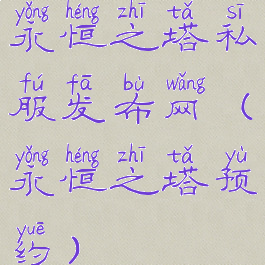 yǒng héng zhī tǎ sī
永恒之塔私
fú fā bù wǎng
服发布网（
yǒng héng zhī tǎ yù
永恒之塔预
yuē
约）